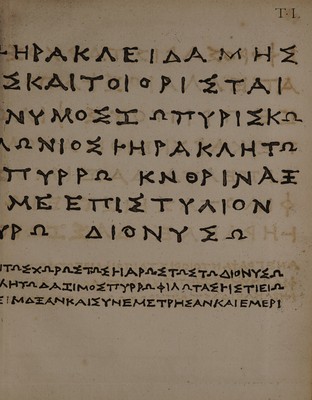 T·I.
ͰΗΡΑΚΛΕΙΔΑΜΗΣ
ΣΚΑΙΤΟΙΟΡΙΣΤΑΙ
ΝΥΜΟΣΖΩΠΥΡΙΣΚΩ
ΛΩΝΙΟΣͰΗΡΑΚΛΗΤΩ
ΠΥΡΡΩ ΚΝΘΡΙΝΑΞ
ΜΕΕΠΙΣΤΥΛΙΟΝ
ΥΡΩ ΔΙΟΝΥΣΩ
ΙΤΩΣΧΩΡΩΣΤΩΣͰΙΑΡΩΣΤΩΣΤΩΔΙΟΝΥΣΩ
ΛΗΤΩΔΑΖΙΜΟΣΠΥΡΡΩΦΙΛΩΤΑΣͰΙΣΤΙΕΙΩ
ΜΑΞΑΝΚΑΙΣΥΝΕΜΕΤΡΗΣΑΝΚΑΙΕΜΕΡΙ